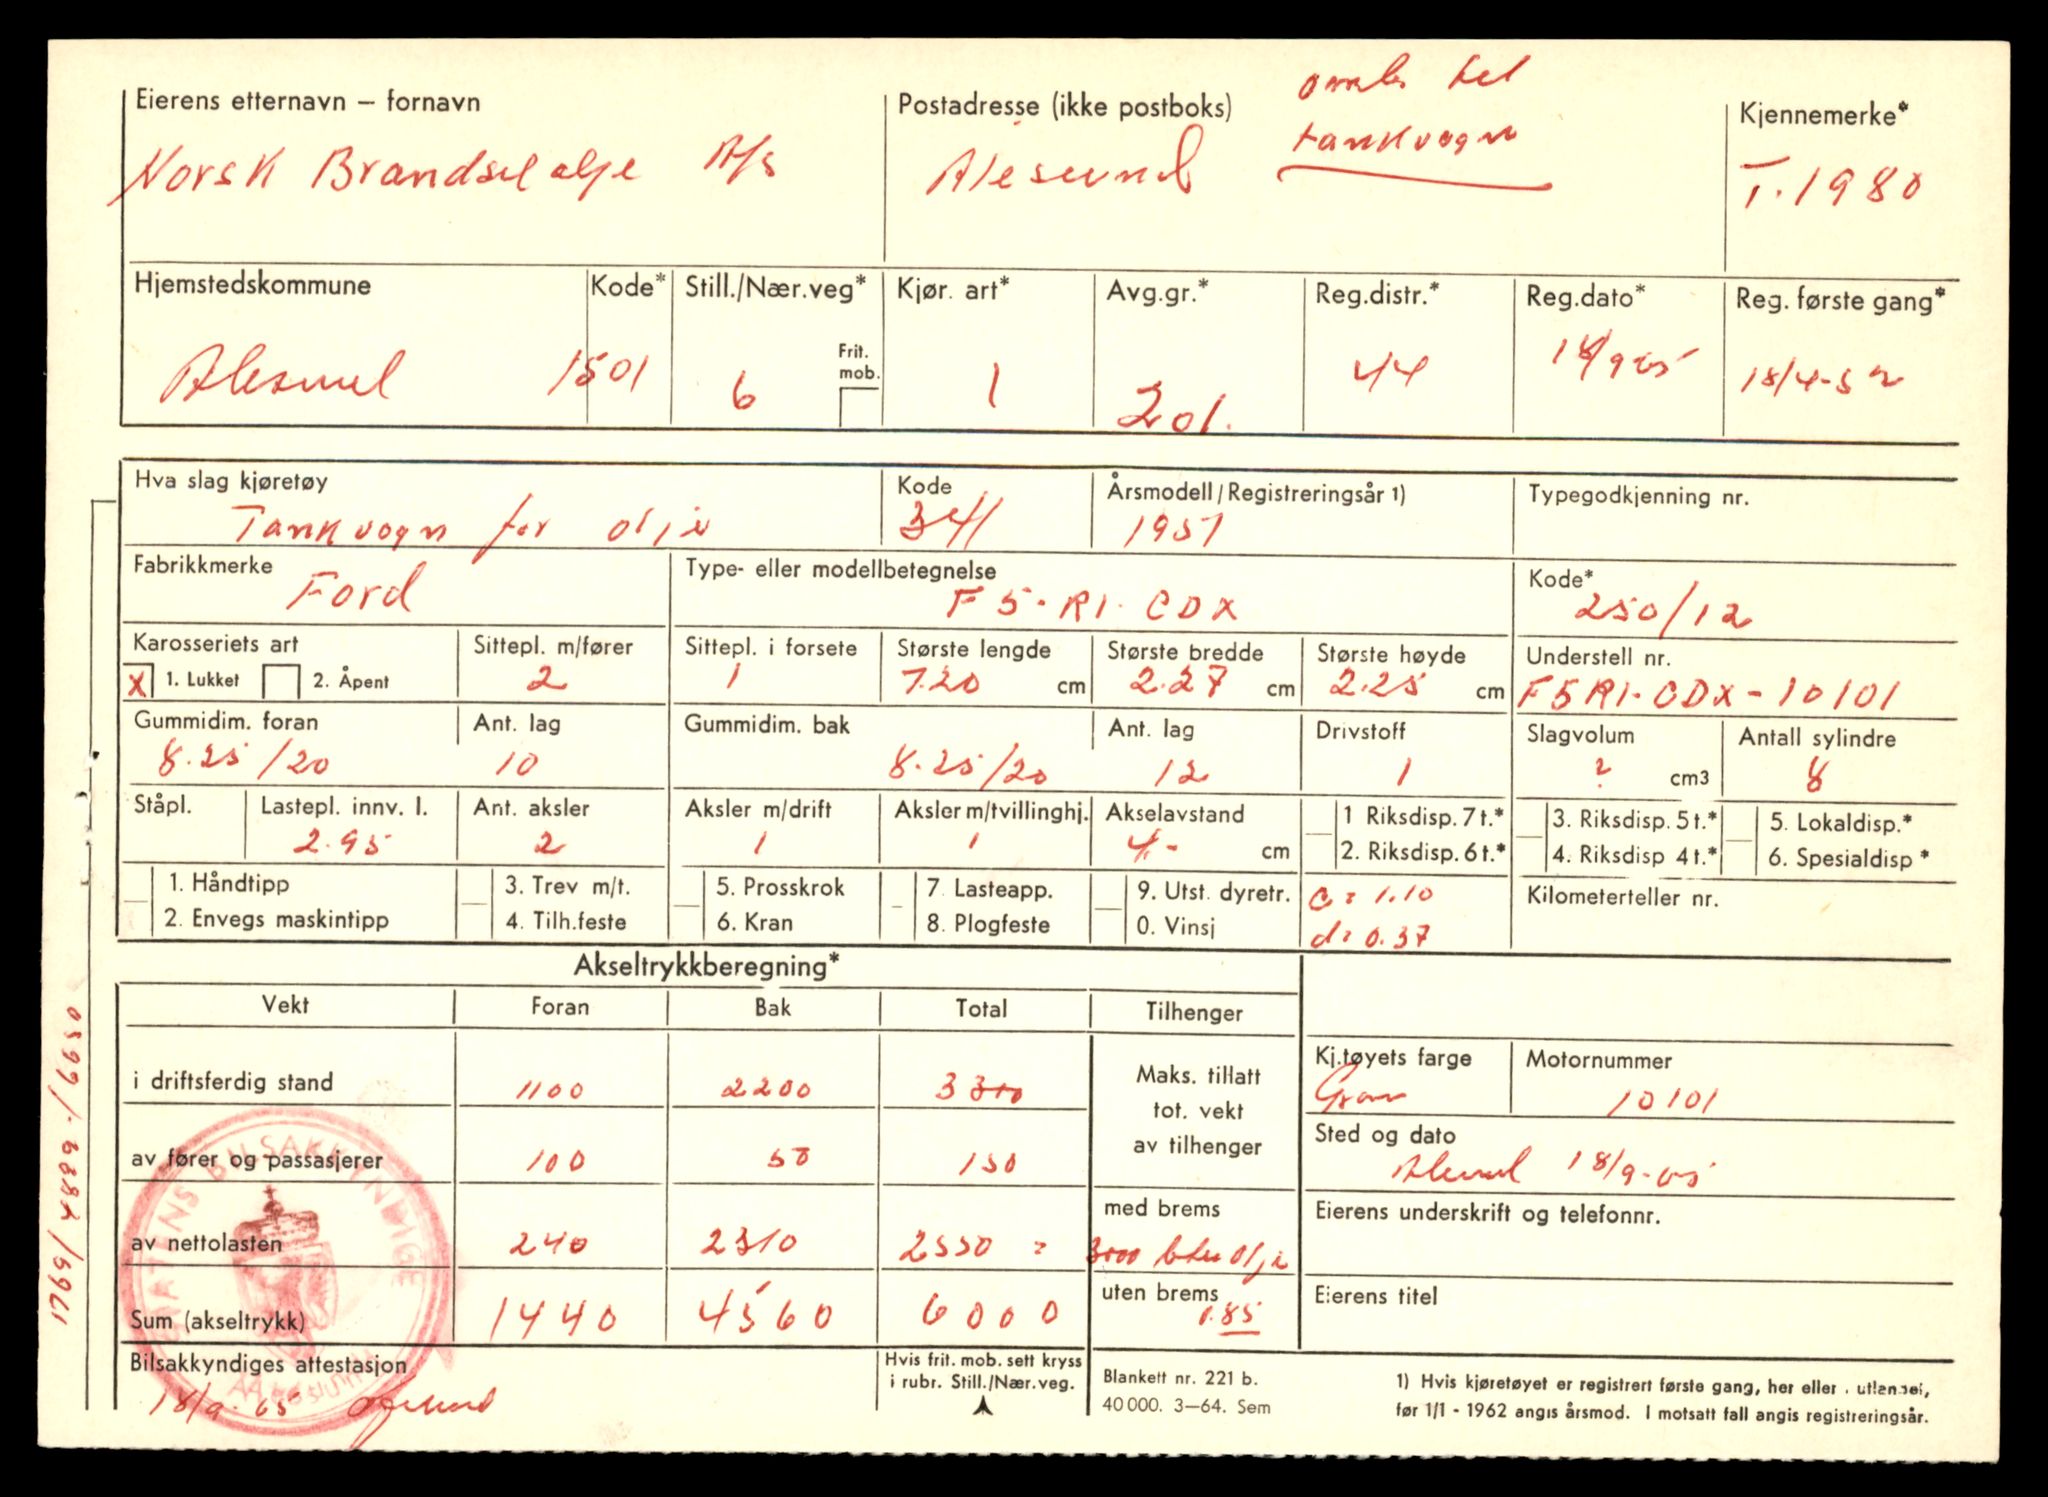 Eierens etternavn – fornavn
Norsk Brandselolje A/S
Postadresse (ikke postboks)
Ålesund
til
tankvogn
Kjennemerke*
T.1980
Hjemstedskommune
Ålesund
Kode*
1501
Still./Nær.veg*
6
Frit.
mob.
Kjør. art*
1
Avg.gr.*
201.
Reg.distr.*
44
Reg.dato*
18/9-65
Reg. første gang*
18/4-52
Hva slag kjøretøy
Tankvogn for olje
Kode
341
Årsmodell/Registreringsår 1)
1951
Typegodkjenning nr.
Fabrikkmerke
Ford
Type- eller modellbetegnelse
F5-R1-CDX
Kode*
250/12
Karosseriets art
X 1. Lukket 2. Åpent
Sittepl. m/fører
2
Sittepl. i forsete
1
Største lengde
7.20 cm
Største bredde
2.27 cm
Største høyde
2.25 cm
Understell nr.
F5R1-CDX-10101
Gummidim. foran
8.25/20
Ant. lag
10
Gummidim. bak
8.25/20
Ant. lag
12
Drivstoff
1
Slagvolum
? cm3
Antall sylindre
8
Ståpl.
Lastepl. innv. l.
2.95
Ant. aksler
2
Aksler m/drift
1
Aksler m/tvillinghj.
1
Akselavstand
4.- cm
1 Riksdisp. 7 t.*
2. Riksdisp. 6 t.*
3. Riksdisp. 5 t.*
4. Riksdisp 4 t.*
5. Lokaldisp.*
6. Spesialdisp *
1. Håndtipp
2. Envegs maskintipp
3. Trev m/t.
4. Tilh.feste
5. Prosskrok
6. Kran
7. Lasteapp.
8. Plogfeste
9. Utst. dyretr.
0. Vinsj
c = 1.10
d = 0.37
Kilometerteller nr.
Akseltrykkberegning*
Vekt Foran Bak Total Tilhenger
i driftsferdig stand 1100 2200 3300
av fører og passasjerer 100 50 150
av nettolasten 240 2310 2550 =
Sum (akseltrykk) 1440 4560 6000
Maks. tillatt
tot. vekt
av tilhenger
med brems
3000 olje
uten brems
0.85
Kj.tøyets farge
Motornummer
10101
Sted og dato
Ålesund 18/9-65
Eierens underskrift og telefonnr.
Eierens titel
Bilsakkyndiges attestasjon
18/9-65
STATENS BILSAKKYNDIGE
Hvis frit. mob. sett kryss
i rubr. Still./Nær.veg.
Blankett nr. 221 b.
40 000. 3–64. Sem
1) Hvis kjøretøyet er registrert første gang, her eller i utlandet,
før 1/1 - 1962 angis årsmod. I motsatt fall angis registreringsår.